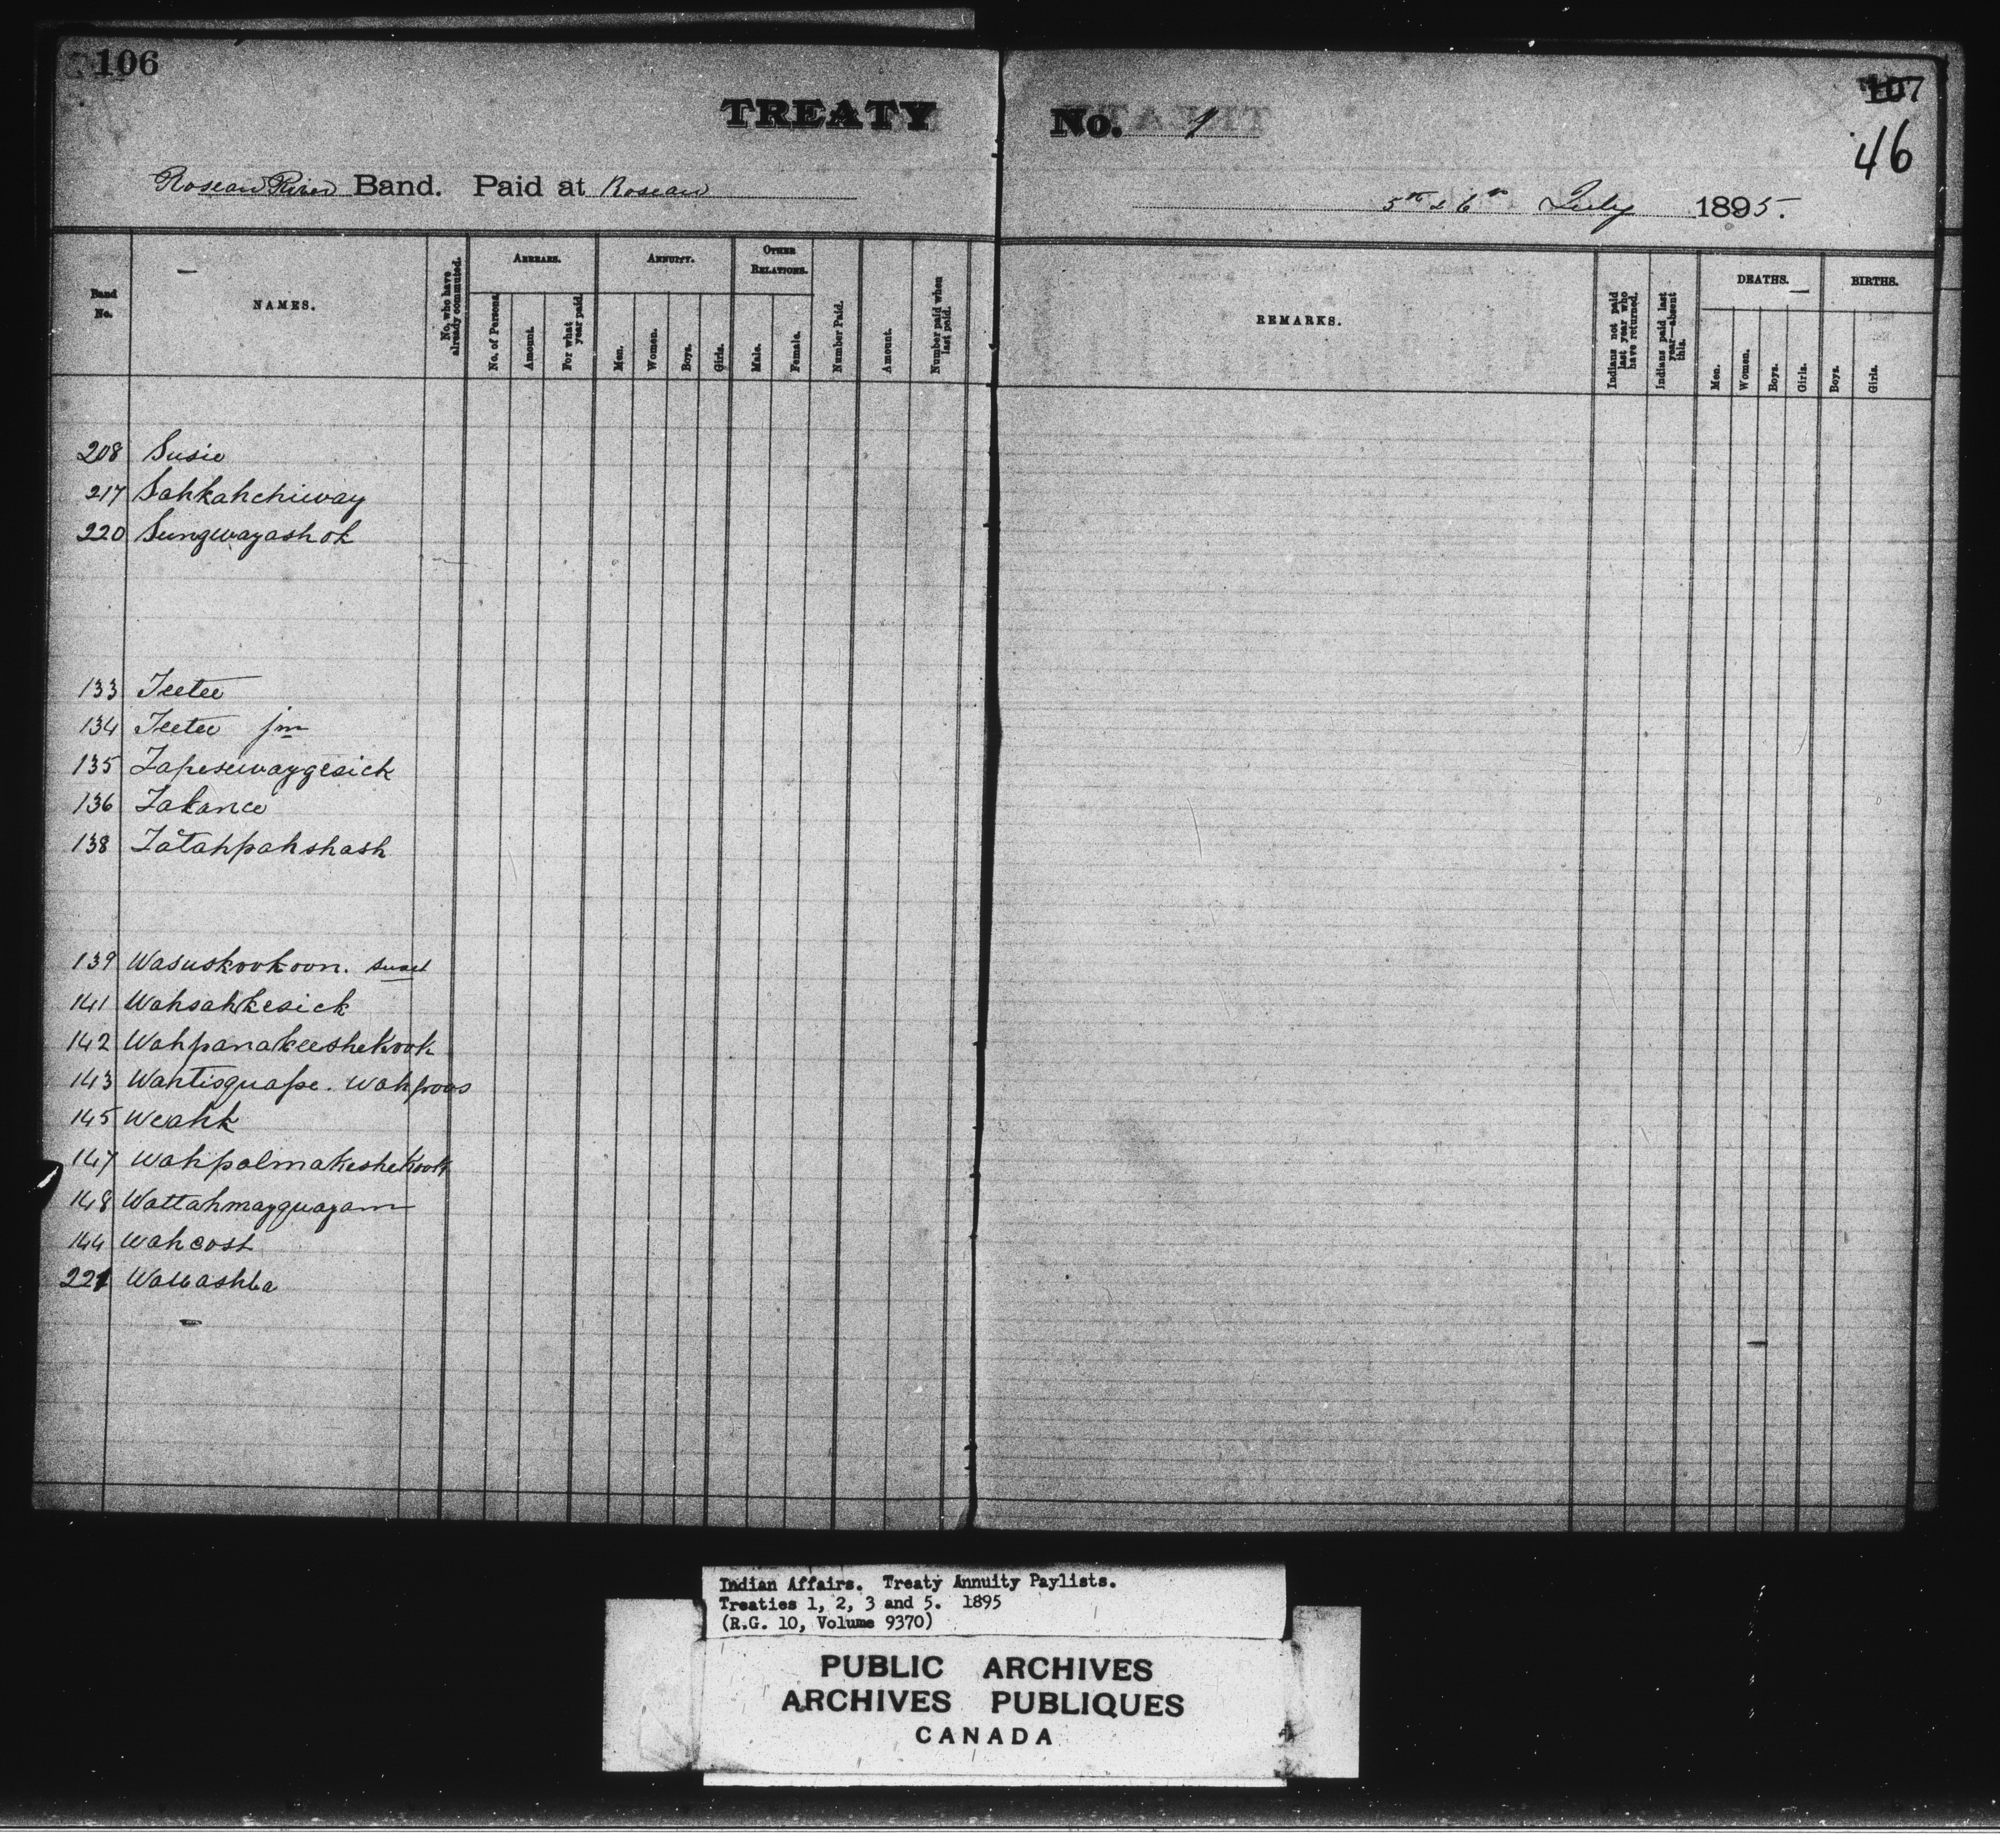 106
107
46
TREATY No. 1
Roseau River Band. Paid at Roseau
5th & 6th July 1895.
Band No.
NAMES.
No. who have already commuted.
ARREARS.
No. of Persons.
Amount.
For what year paid.
ANNUITY.
Men.
Women.
Boys.
Girls.
OTHER RELATIONS.
Male.
Female.
Number Paid.
Amount.
Number paid when last paid.
REMARKS.
Indians not paid last year who have returned.
Indians paid last year—absent this.
DEATHS.
Men.
Women.
Boys.
Girls.
BIRTHS.
Boys.
Girls.
208 Susie
217 Sahkahchiway
220 Sungwayashok
133 Teetee
134 Teetee jnr
135 Tapesewaygesick
136 Takance
138 Tatahpahshash
139 Wasuskookoon.
141 Wahsahkesick
142 Wahpanakeeshekook
143 Wahtisguape. Wahpoos
145 Weahk
147 Wahpalmakeshekook
148 Wattahmayguayam
144 Wahcost
221 Wawashba
Indian Affairs. Treaty Annuity Paylists.
Treaties 1, 2, 3 and 5. 1895
(R.G. 10, Volume 9370)
PUBLIC ARCHIVES
ARCHIVES PUBLIQUES
CANADA